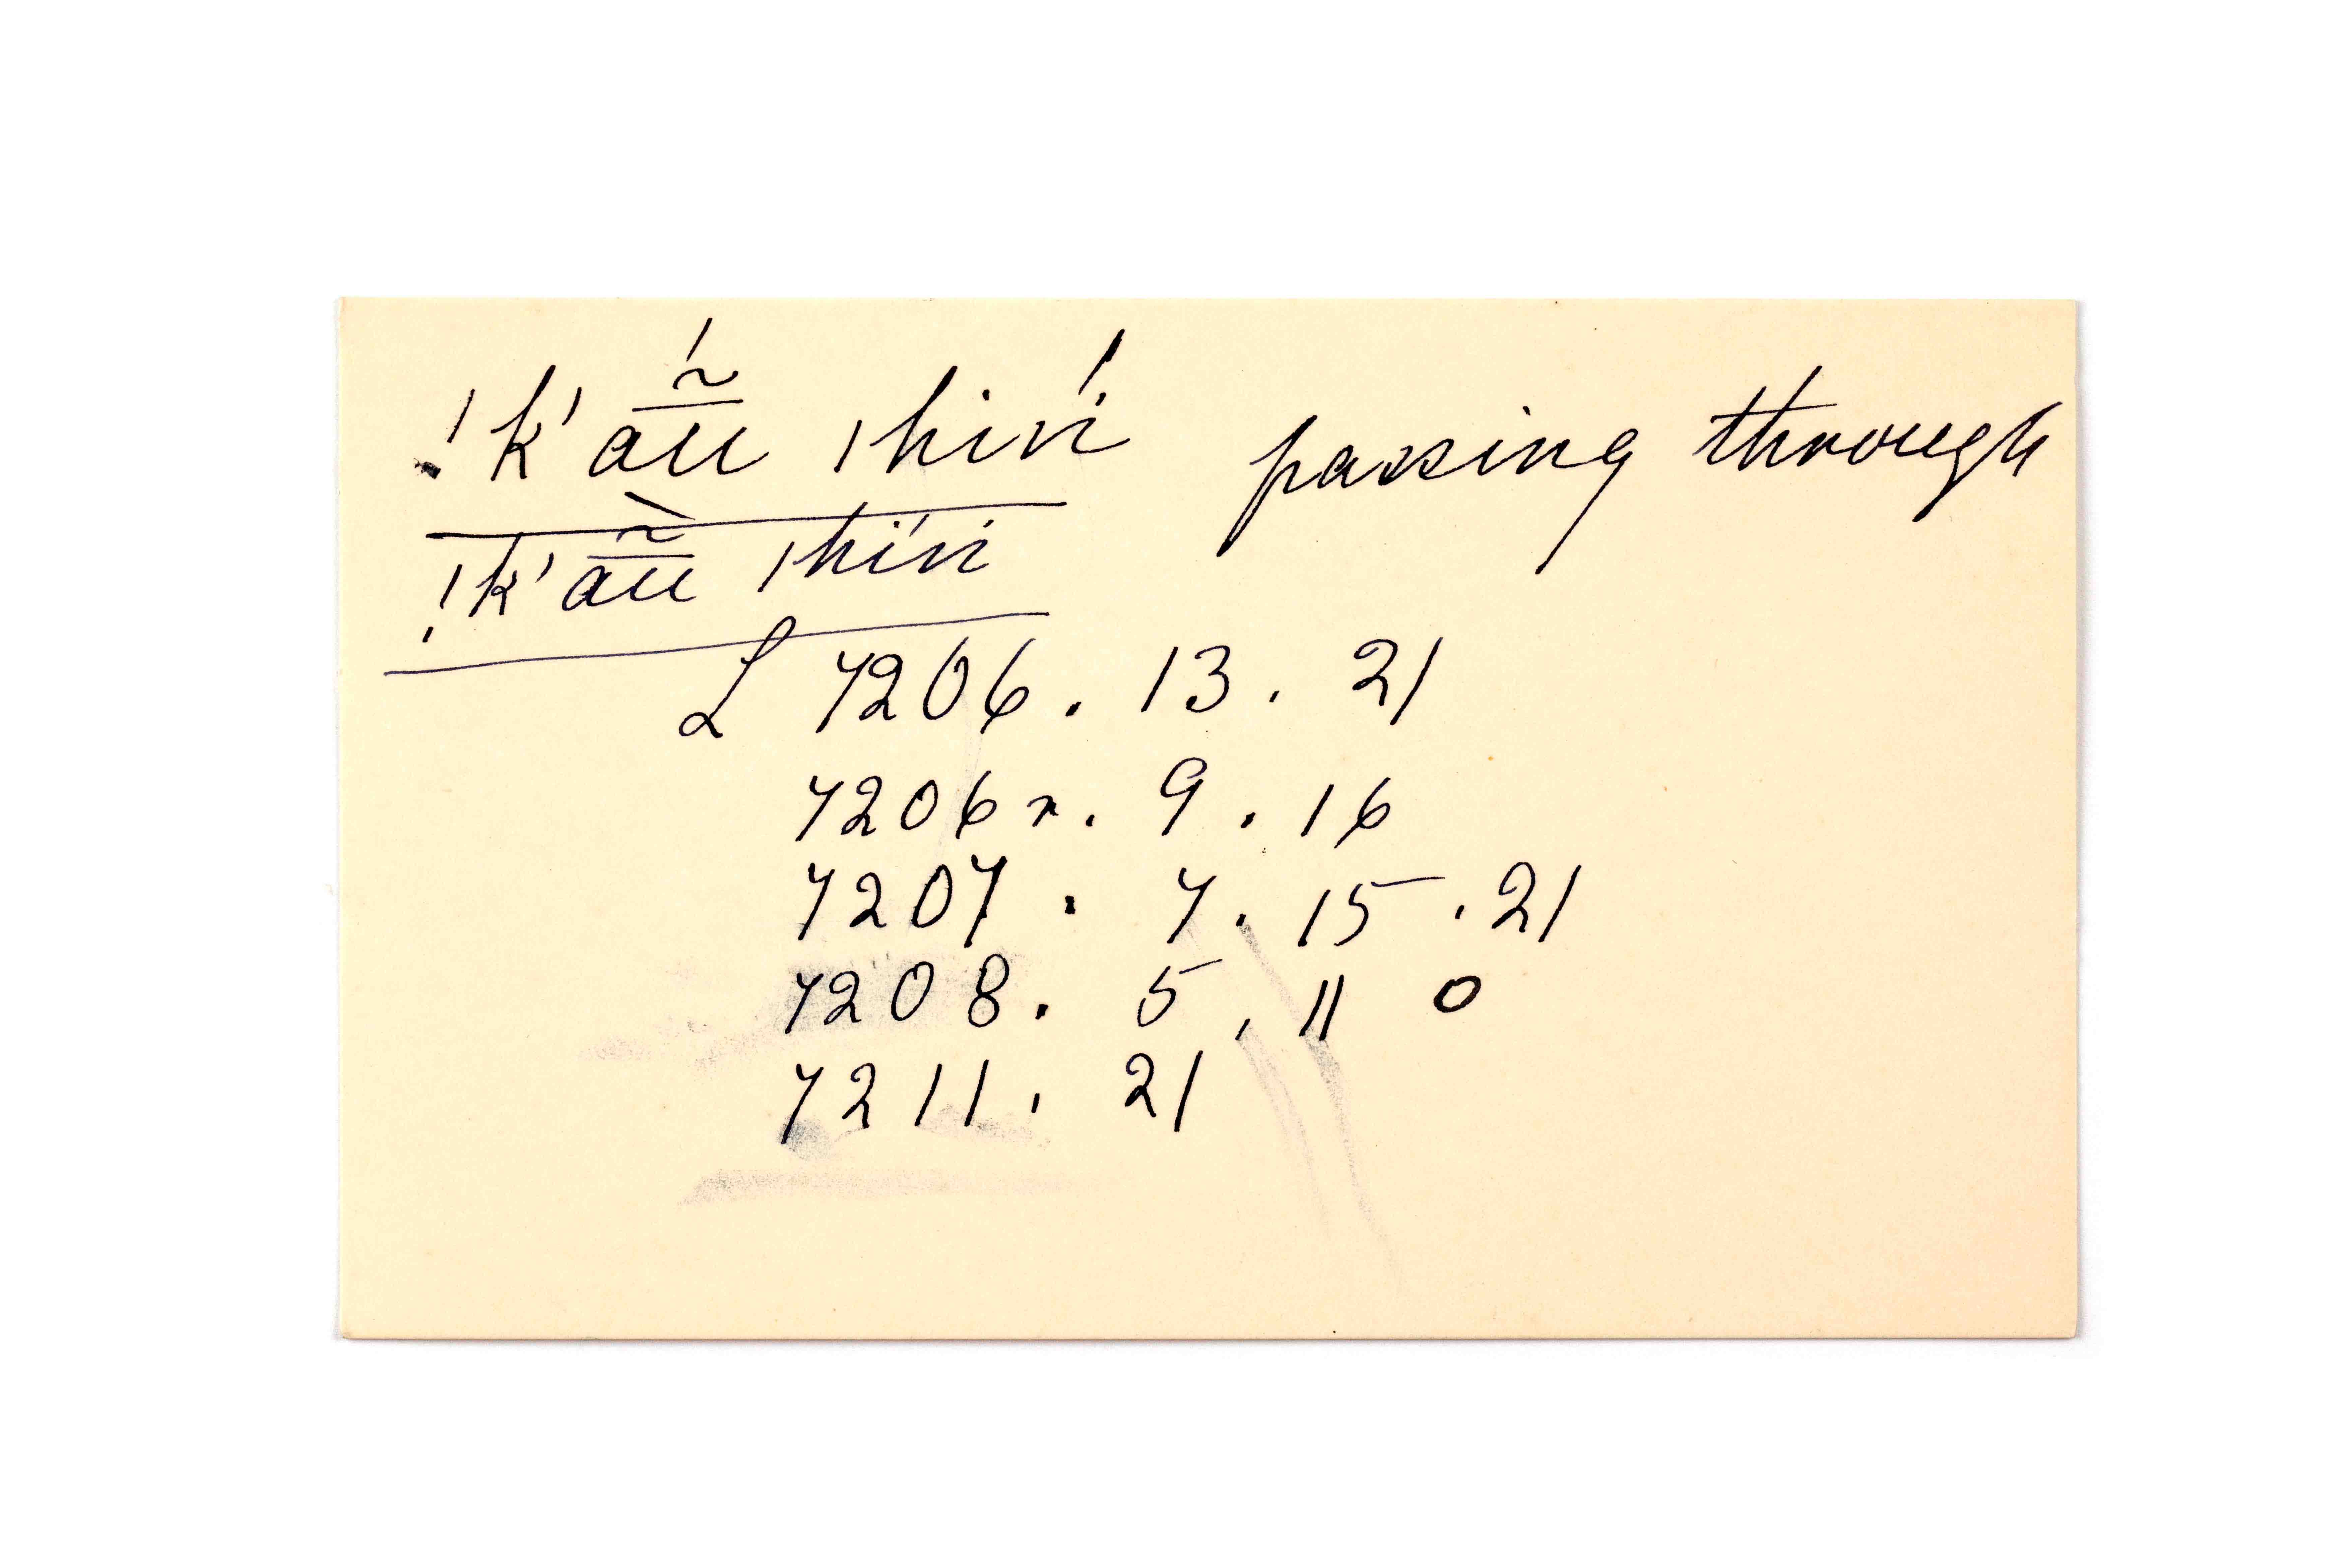 !k'ãũ ǀhiń passing through
!k'ãũ ǀhiń
L 7206. 13. 21
7206r. 9. 16
7207. 7. 15. 21
7208. 5. 11 0
7211. 21